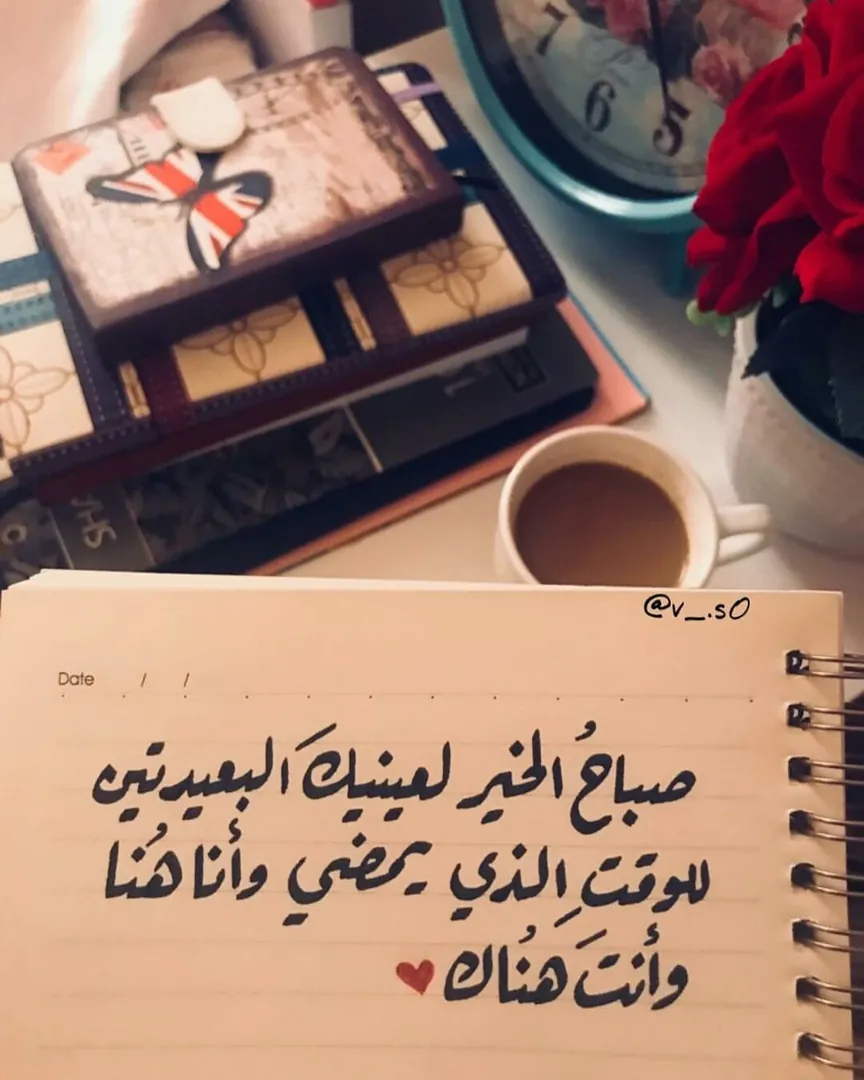 7
6
5
SHO
@v_.s0
Date / /
صباحُ الخير لعينيكَ البعيدتين
للوقتِ الذي يمضي وأنا هُنا
وأنتَ هنُاك